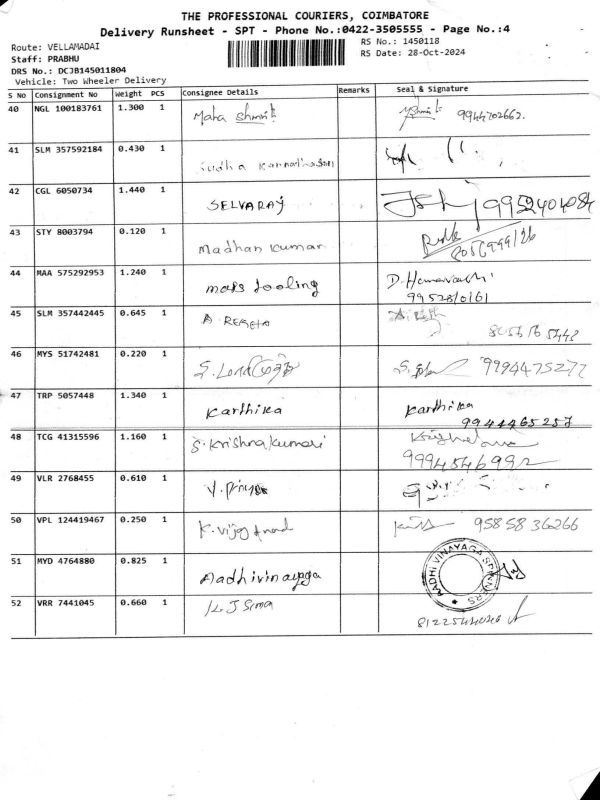 THE PROFESSIONAL COURIERS, COIMBATORE
Delivery Runsheet - SPT - Phone No.:0422-3505555 - Page No.:4
Route: VELLAMADAI
RS No.: 1450118
Staff: PRABHU
RS Date: 28-Oct-2024
DRS No.: DCJB145011804
Vehicle: Two Wheeler Delivery
S No Consignment No Weight PCS Consignee Details Remarks Seal & Signature
40 NGL 100183761 1.300 1 Maha 9944702662.
41 SLM 357592184 0.430 1 Sudha
42 CGL 6050734 1.440 1 SELVARAJ
43 STY 8003794 0.120 1 Madhan Kumar
44 MAA 575292953 1.240 1 tooling D. Hemavathi
9952810161
45 SLM 357442445 0.645 1 A
46 MYS 51742481 0.220 1 S. 9994475277
47 TRP 5057448 1.340 1 Karthika Karthika
9944465257
48 TCG 41315596 1.160 1 S. Krishnakumari
9994546992
49 VLR 2768455 0.610 1 V. Priya
50 VPL 124419467 0.250 1 K. Vijay Anand 9585836266
51 MYD 4764880 0.825 1 Aadhivinayaga AADHI VINAYAGA SPINNERS
52 VRR 7441045 0.660 1